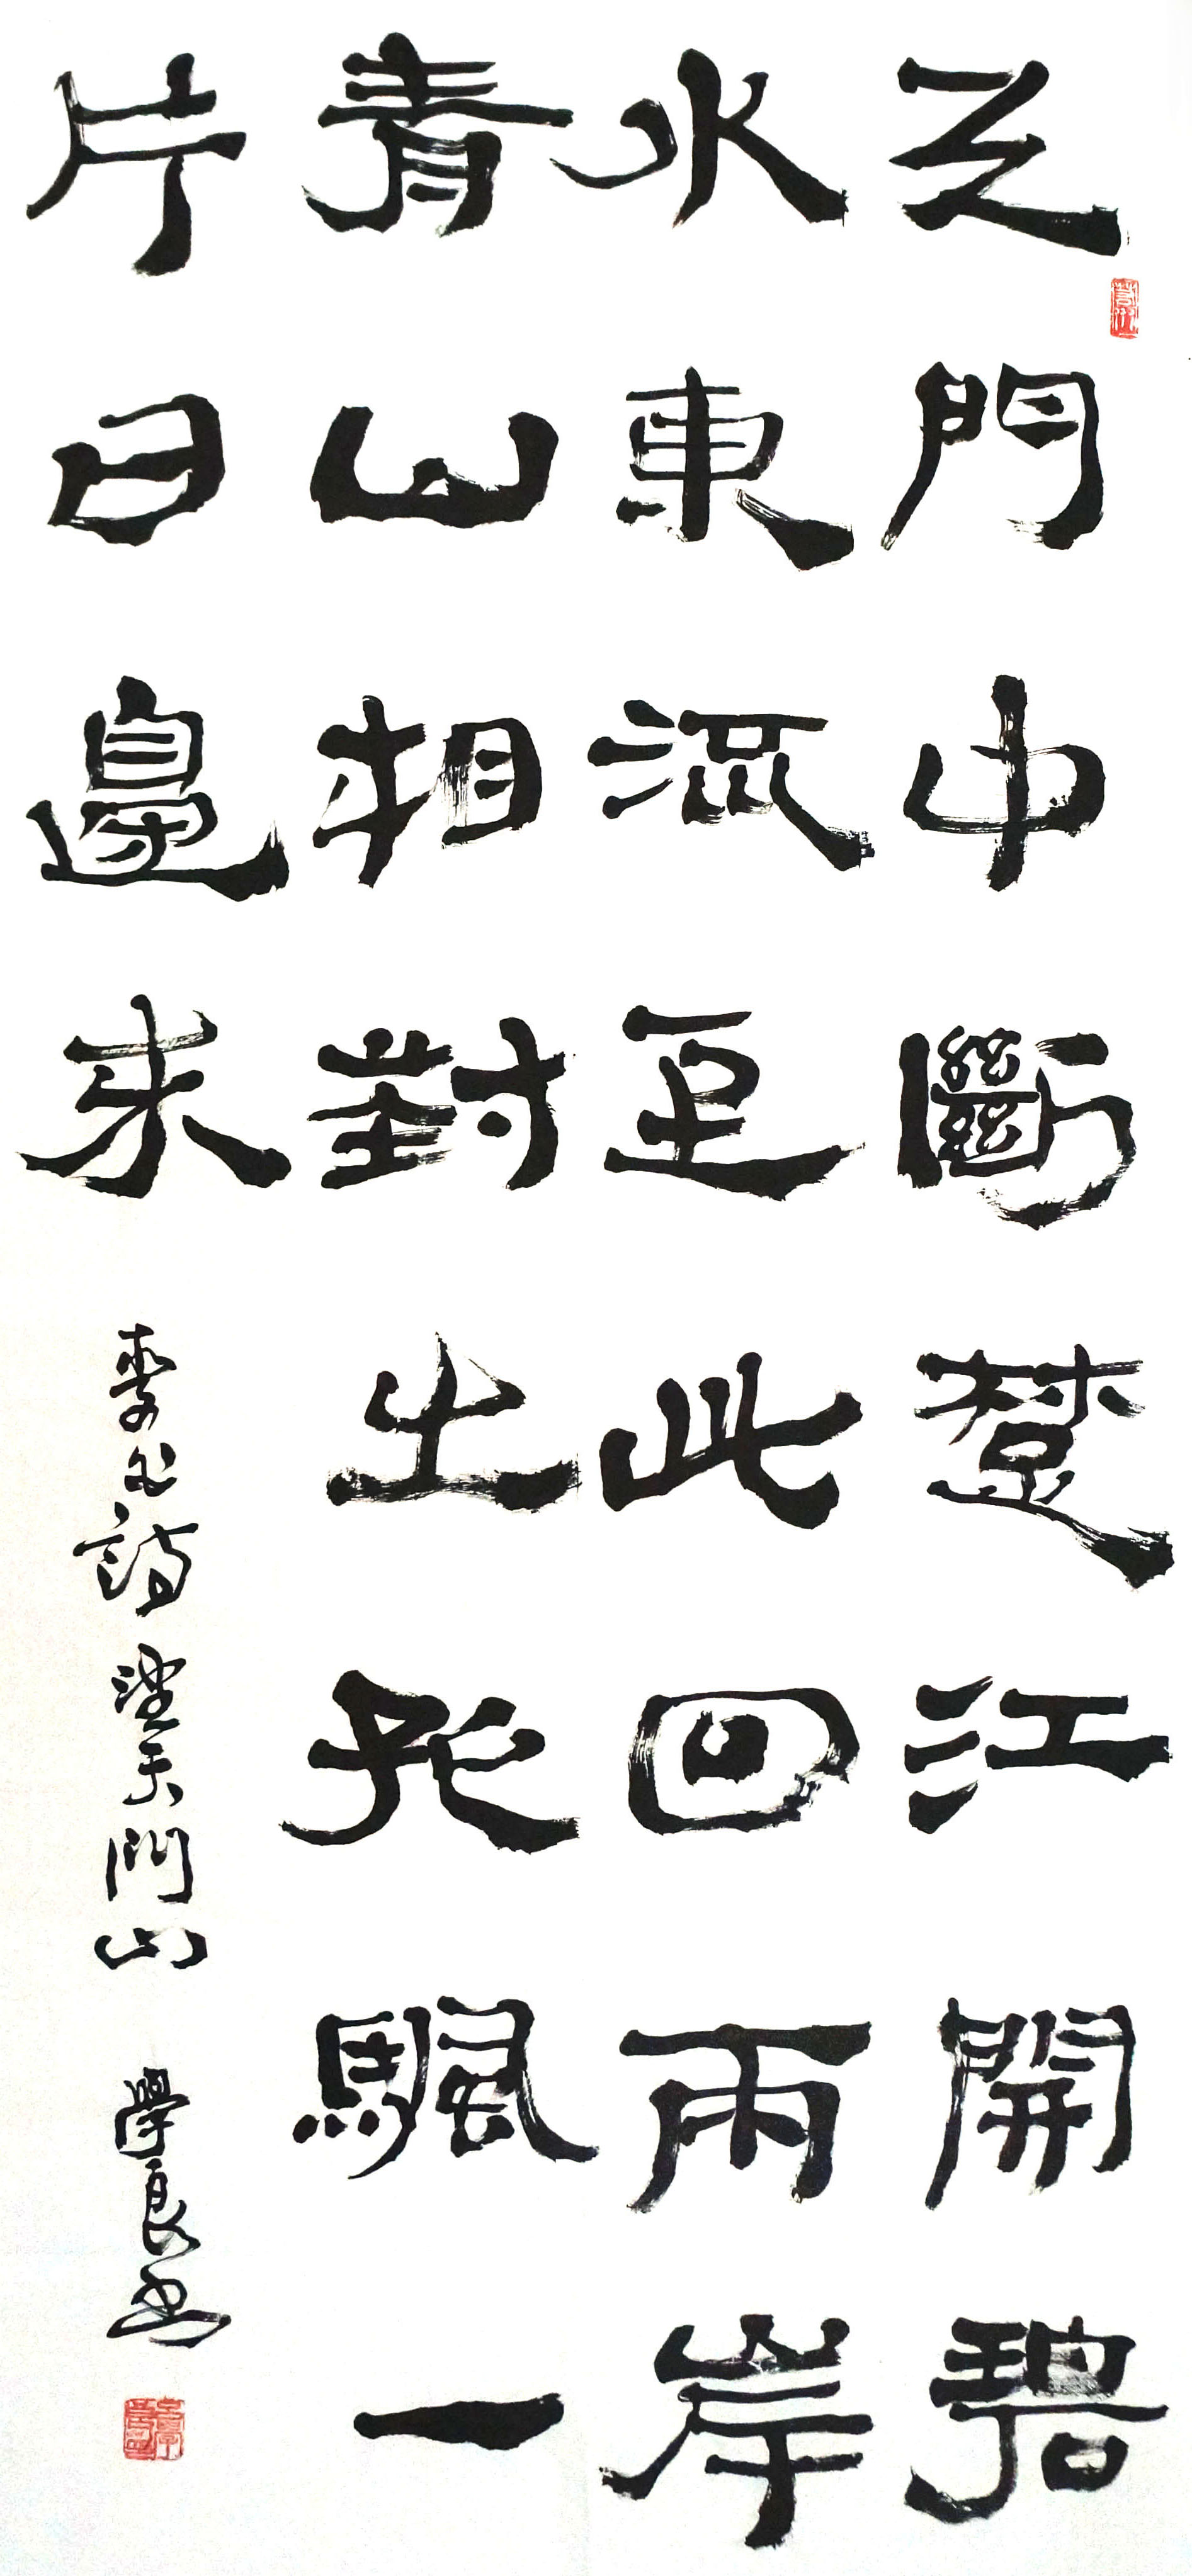 天門中斷楚江開碧
水東流至此回兩岸
青山相對出孤颿一
片日邊來
李白詩望天門山 學良書